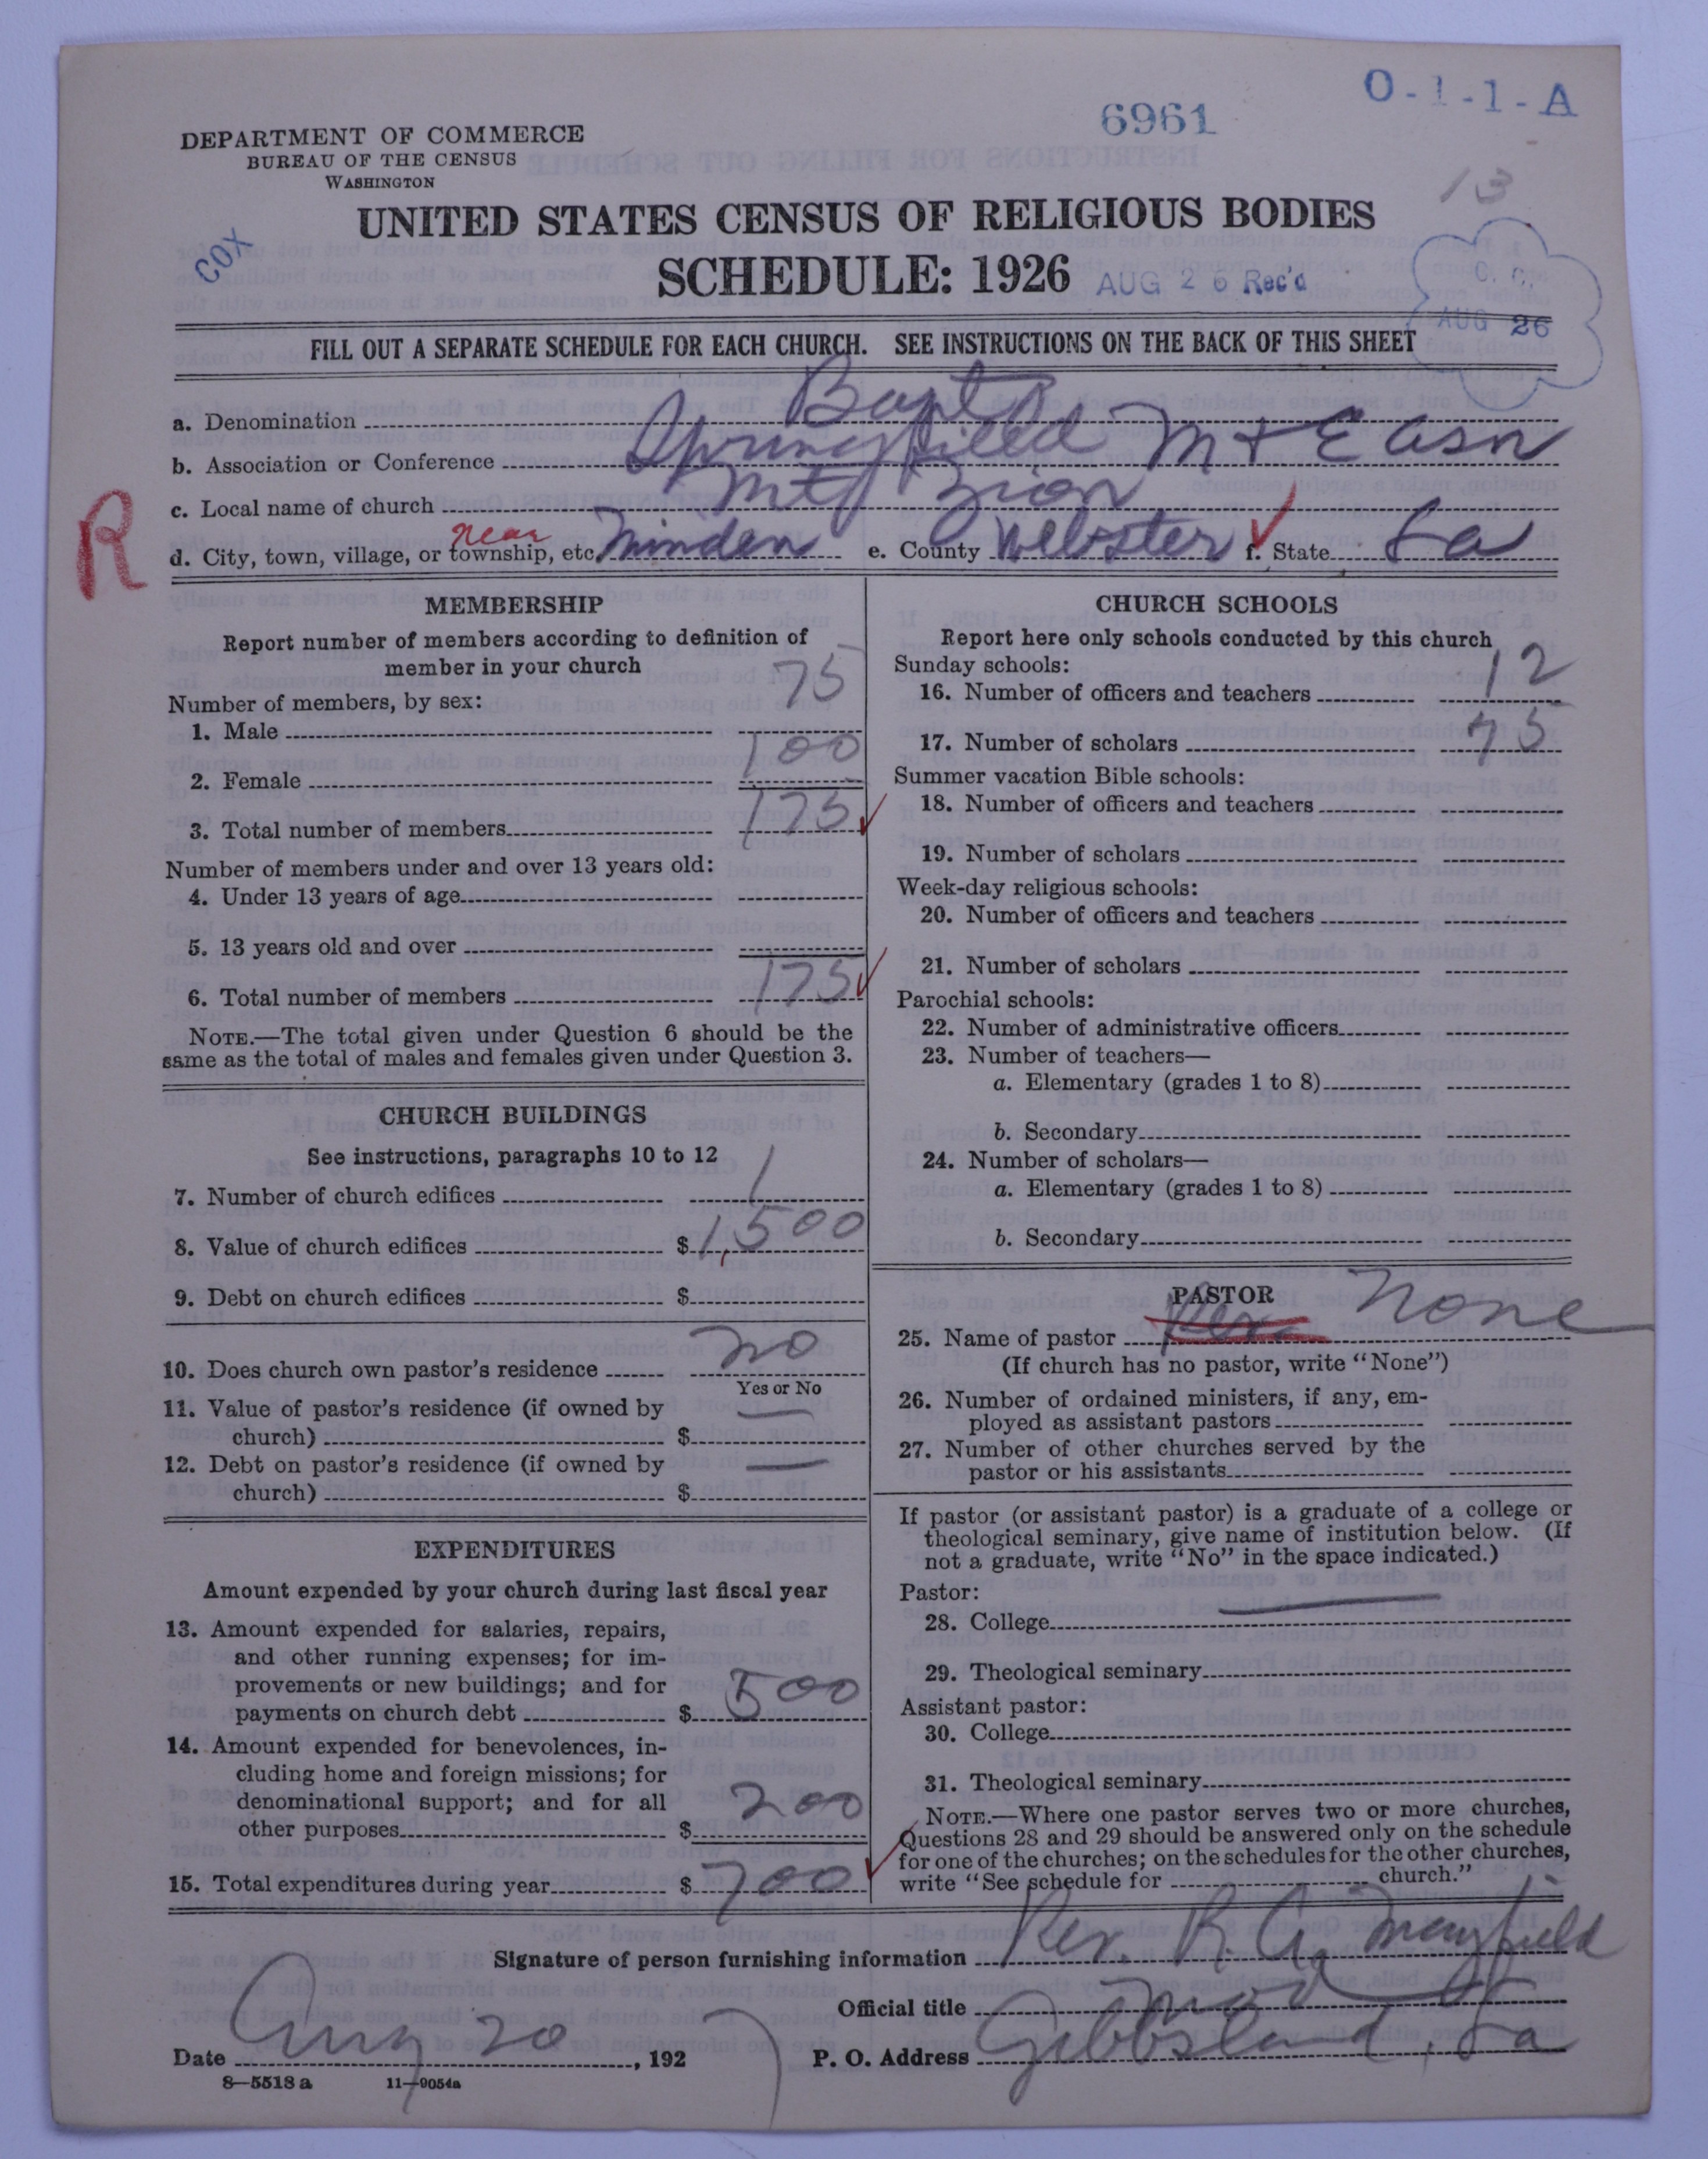 O-1-1-A
6961
DEPARTMENT OF COMMERCE
BUREAU OF THE CENSUS
WASHINGTON
13
UNITED STATES CENSUS OF RELIGIOUS BODIES
COX
SCHEDULE: 1926 AUG 26 Rec'd
C. C.
AUG 26
FILL OUT A SEPARATE SCHEDULE FOR EACH CHURCH. SEE INSTRUCTIONS ON THE BACK OF THIS SHEET
a. Denomination Bapt
b. Association or Conference Springfield M + E Assn
c. Local name of church Mt Zion
R
near
d. City, town, village, or township, etc. Minden e. County Webster f. State La
MEMBERSHIP
Report number of members according to definition of
member in your church
Number of members, by sex:
1. Male 75
2. Female 100
3. Total number of members 175
Number of members under and over 13 years old:
4. Under 13 years of age
5. 13 years old and over
6. Total number of members 175
NOTE.—The total given under Question 6 should be the
same as the total of males and females given under Question 3.
CHURCH BUILDINGS
See instructions, paragraphs 10 to 12
7. Number of church edifices 1
8. Value of church edifices $1,500
9. Debt on church edifices $
10. Does church own pastor's residence no
Yes or No
11. Value of pastor's residence (if owned by
church) $ —
12. Debt on pastor's residence (if owned by
church) $ —
EXPENDITURES
Amount expended by your church during last fiscal year
13. Amount expended for salaries, repairs,
and other running expenses; for im-
provements or new buildings; and for
payments on church debt $ 500
14. Amount expended for benevolences, in-
cluding home and foreign missions; for
denominational support; and for all
other purposes $ 200
15. Total expenditures during year $ 700
CHURCH SCHOOLS
Report here only schools conducted by this church
Sunday schools:
16. Number of officers and teachers 12
17. Number of scholars 75
Summer vacation Bible schools:
18. Number of officers and teachers
19. Number of scholars
Week-day religious schools:
20. Number of officers and teachers
21. Number of scholars
Parochial schools:
22. Number of administrative officers
23. Number of teachers—
a. Elementary (grades 1 to 8)
b. Secondary
24. Number of scholars—
a. Elementary (grades 1 to 8)
b. Secondary
PASTOR
25. Name of pastor Rev. None
(If church has no pastor, write "None")
26. Number of ordained ministers, if any, em-
ployed as assistant pastors
27. Number of other churches served by the
pastor or his assistants
If pastor (or assistant pastor) is a graduate of a college or
theological seminary, give name of institution below. (If
not a graduate, write "No" in the space indicated.)
Pastor:
28. College —
29. Theological seminary
Assistant pastor:
30. College
31. Theological seminary
NOTE.—Where one pastor serves two or more churches,
Questions 28 and 29 should be answered only on the schedule
for one of the churches; on the schedules for the other churches,
write "See schedule for church."
Signature of person furnishing information Rev. R. A. Mayfield
Official title Mod
Date Aug 20, 1927 P. O. Address Gibbsland, La
8—5518 a 11—9054a